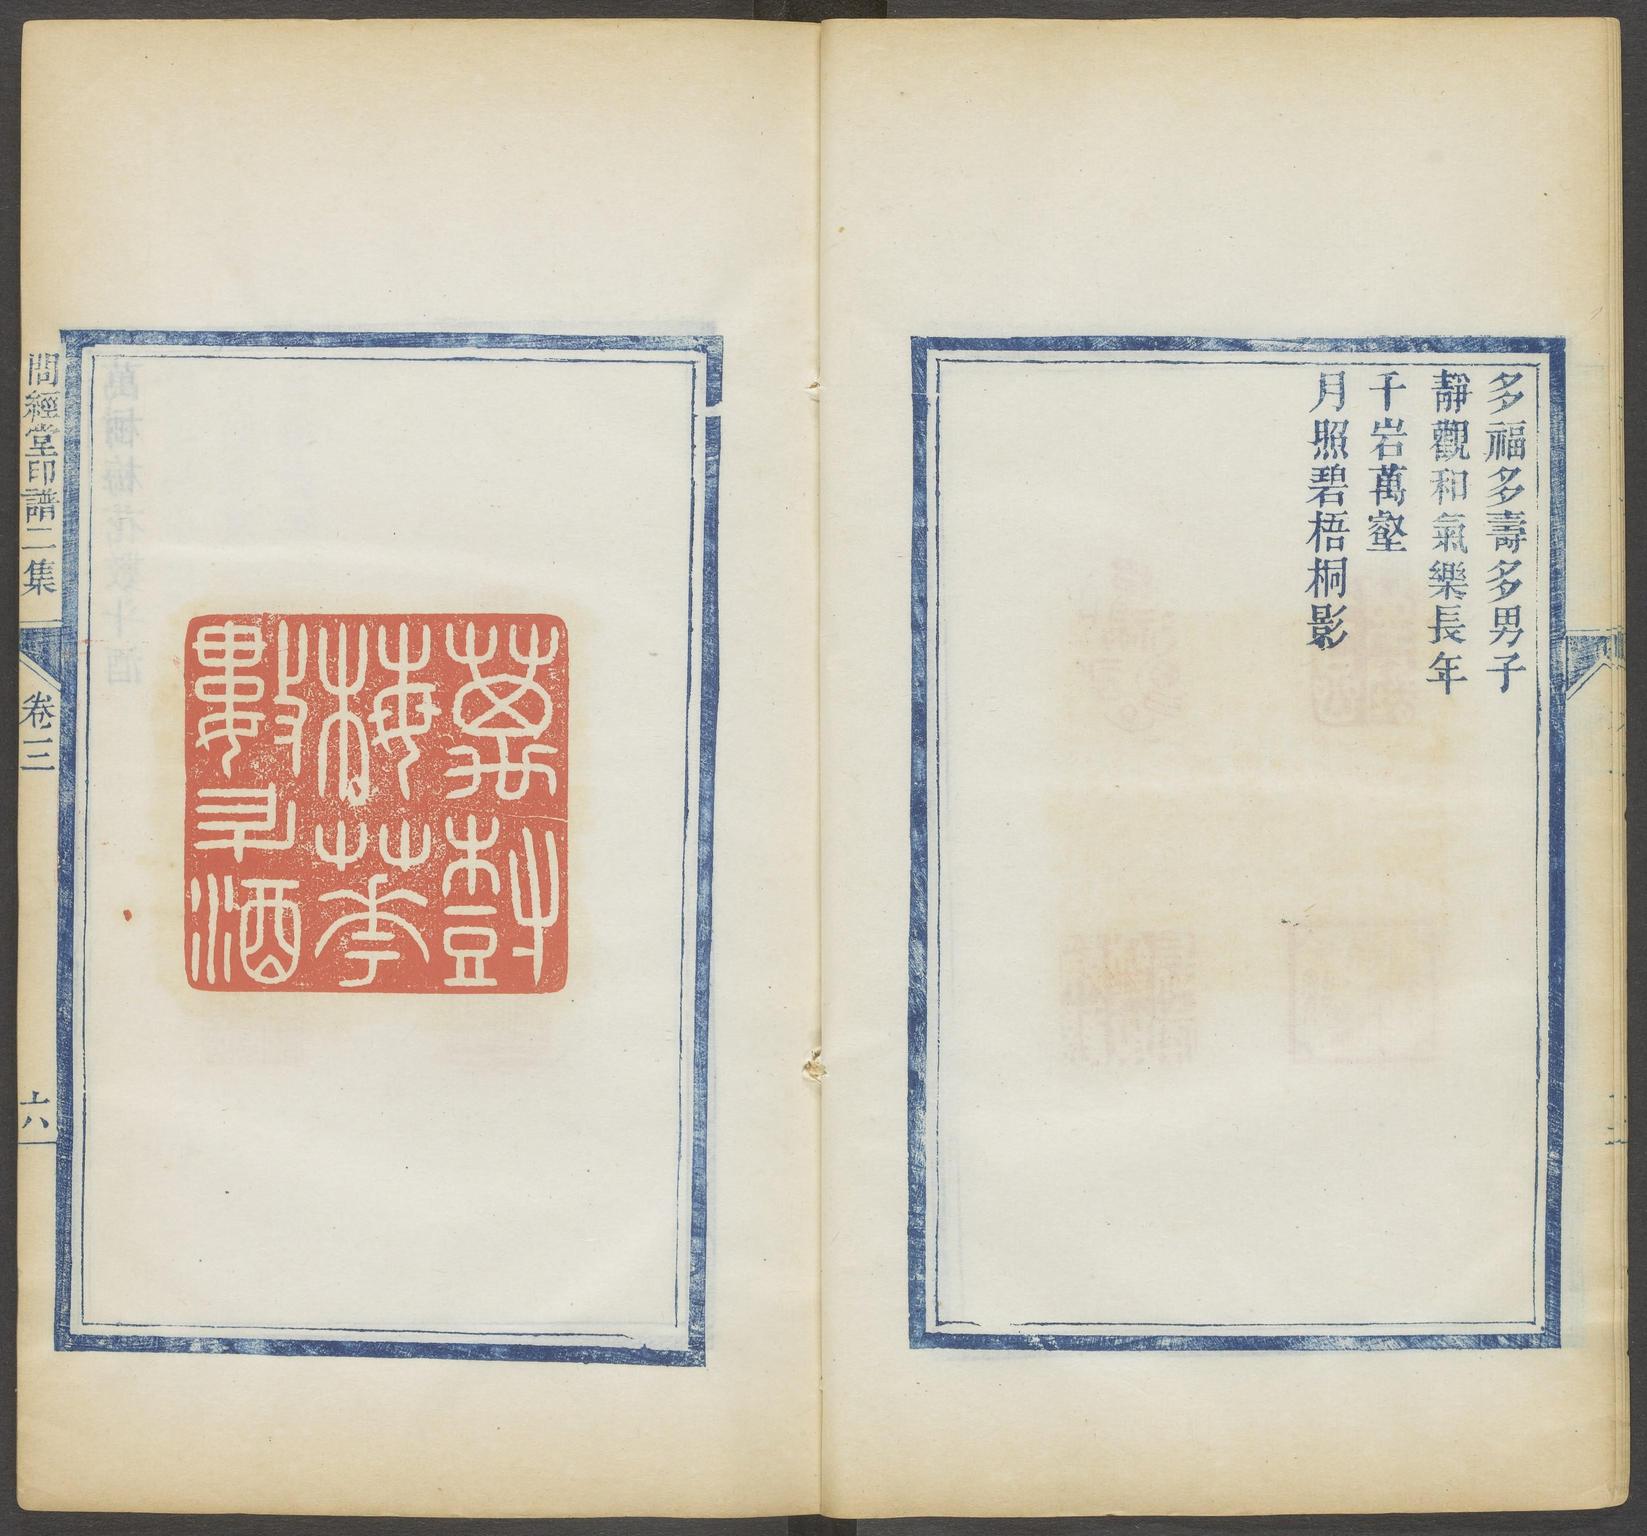 多福多壽多男子
靜觀和氣樂長年
千岩萬壑
月照碧梧桐影
萬樹
梅華
數斗酒
問經堂印譜二集
卷三
六